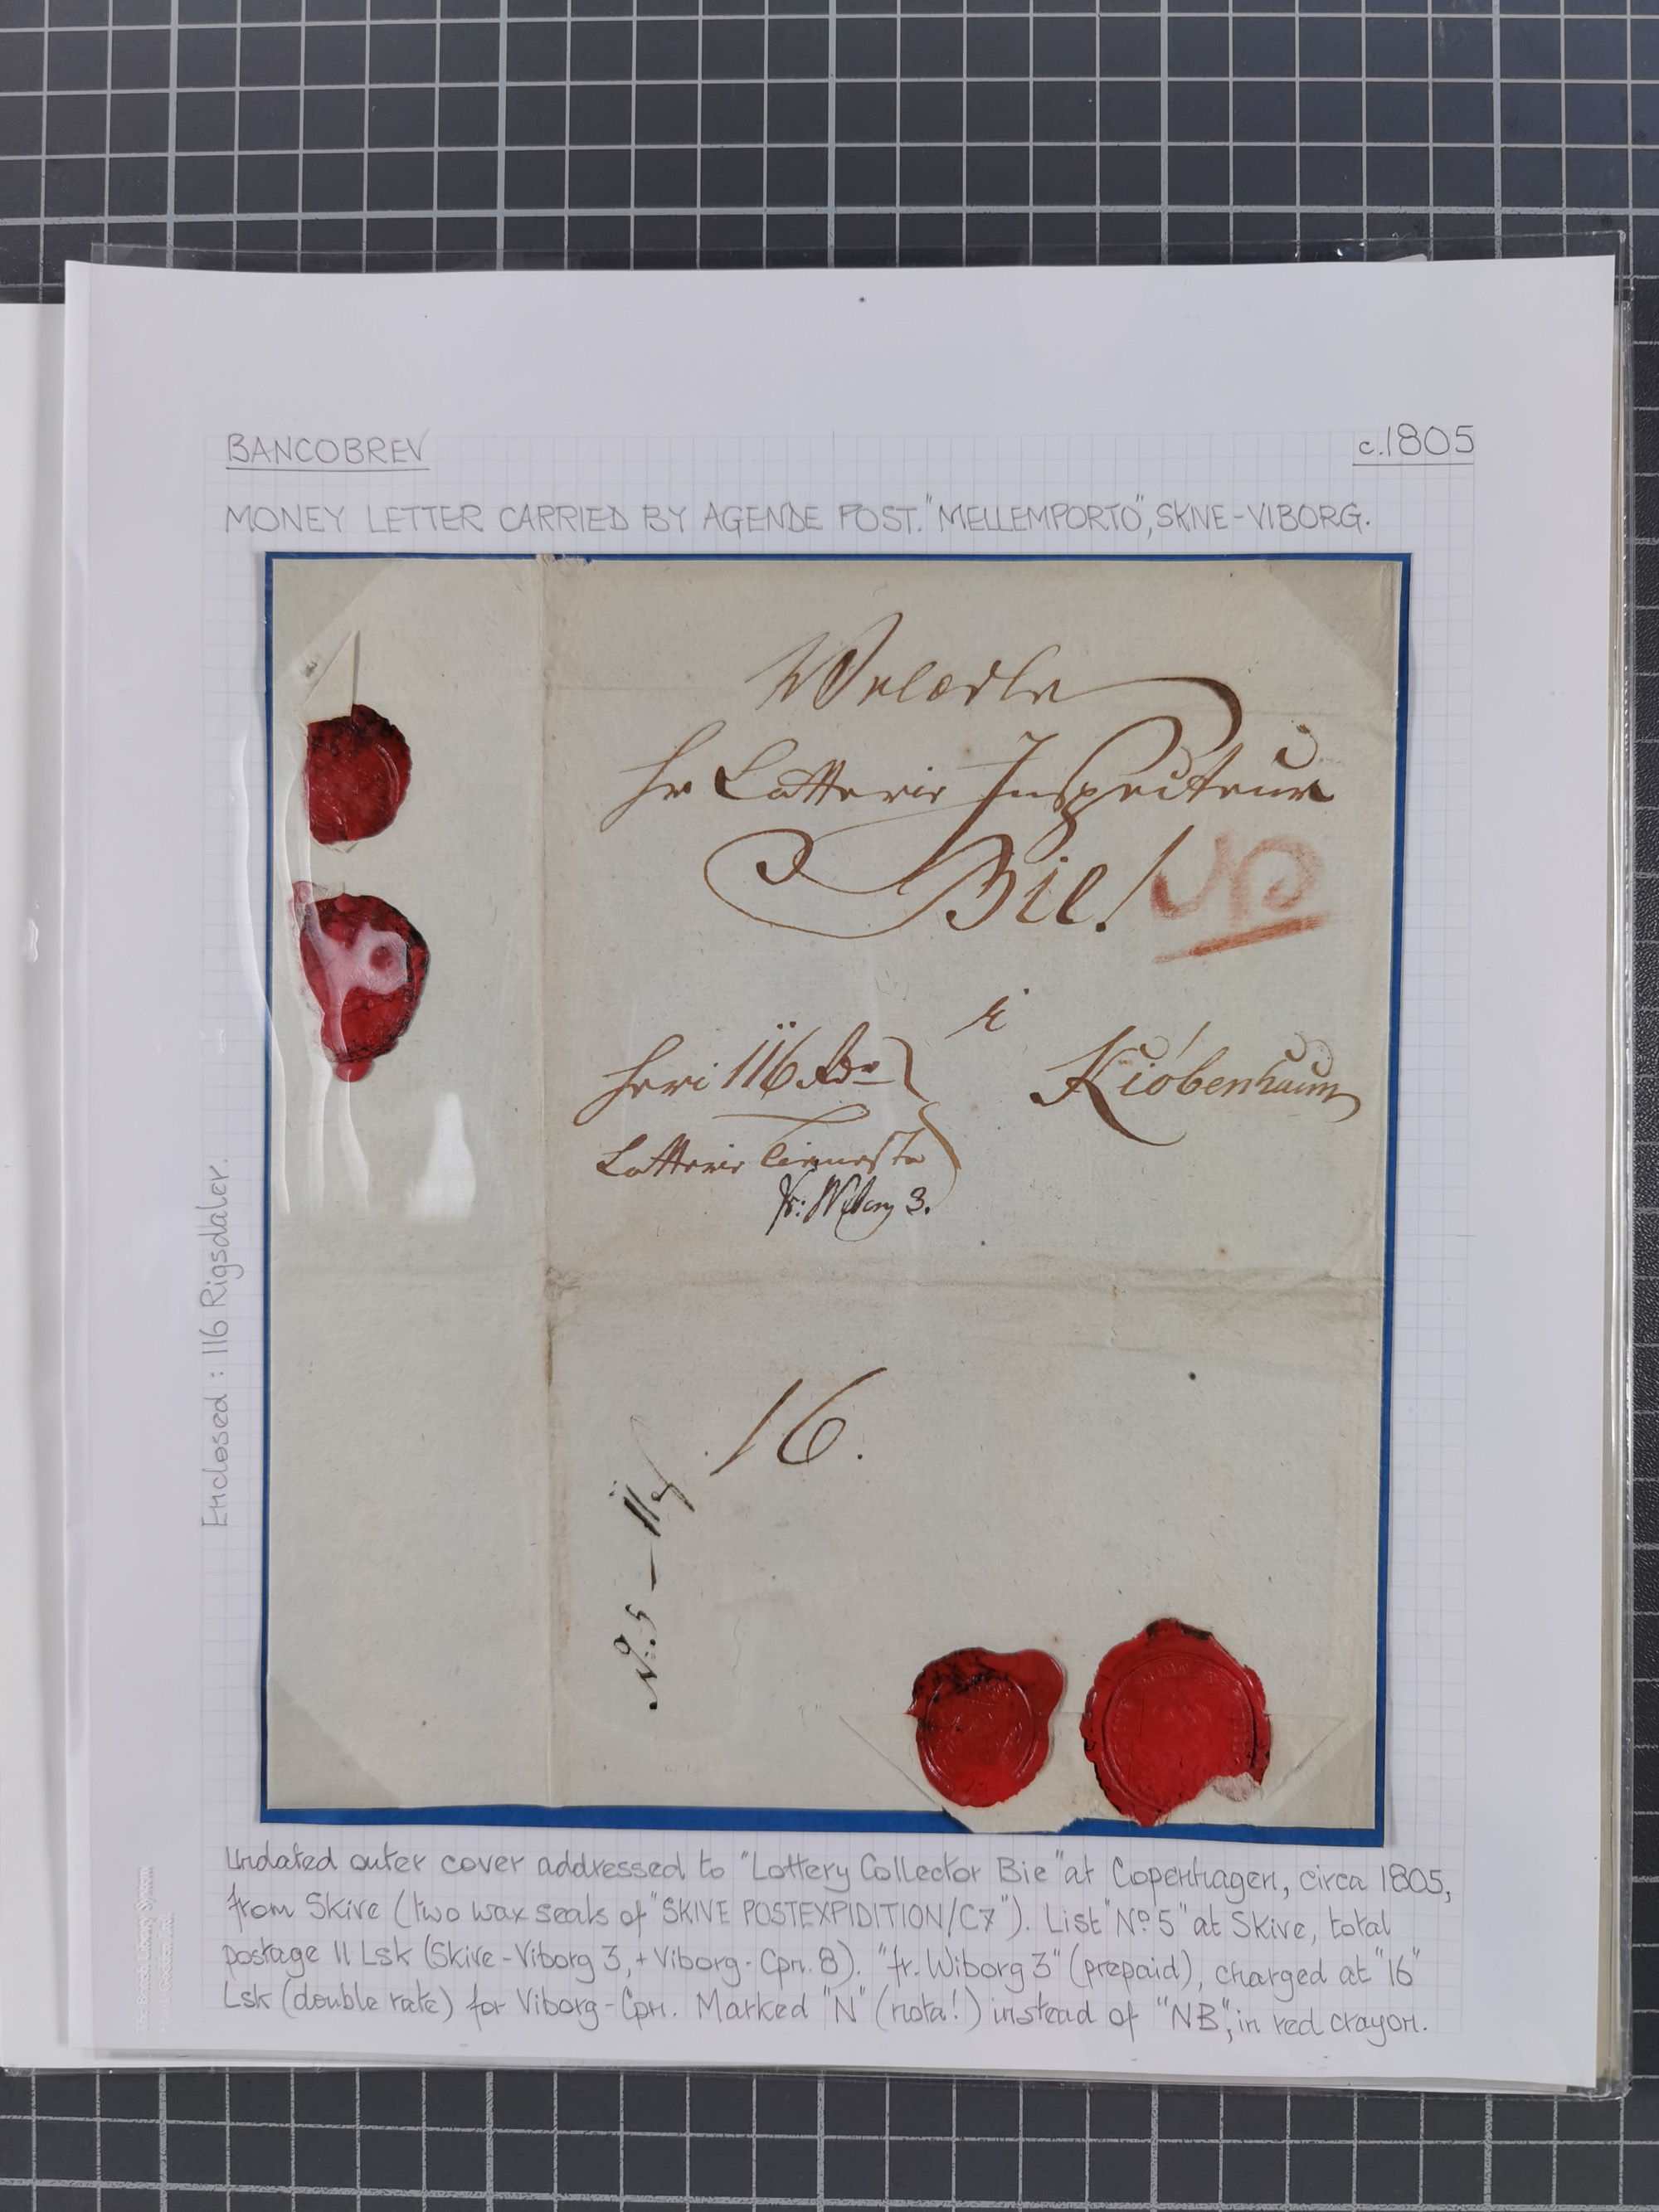 BANCOBREV
c.1805
MONEY LETTER CARRIED BY AGENDE POST. "MELLEMPORTO", SKIVE-VIBORG.
Velædle
Hr Lotterie Inspecteur
Bie!
i
Kiöbenhavn
Heri 116 Rdr
Lotterie Tieneste
fr: Wiborg 3.
16.
No: 5 — 11 s
Enclosed : 116 Rigsdaler.
Undated outer cover addressed to "Lottery Collector Bie" at Copenhagen, circa 1805,
from Skive (two wax seals of "SKIVE POSTEXPIDITION/C7"). List "No 5" at Skive, total
postage 11 Lsk (Skive-Viborg 3, + Viborg-Cpn. 8). "fr. Wiborg 3" (prepaid), charged at "16"
Lsk (double rate) for Viborg-Cpn. Marked "N" (nota!) instead of "NB", in red crayon.